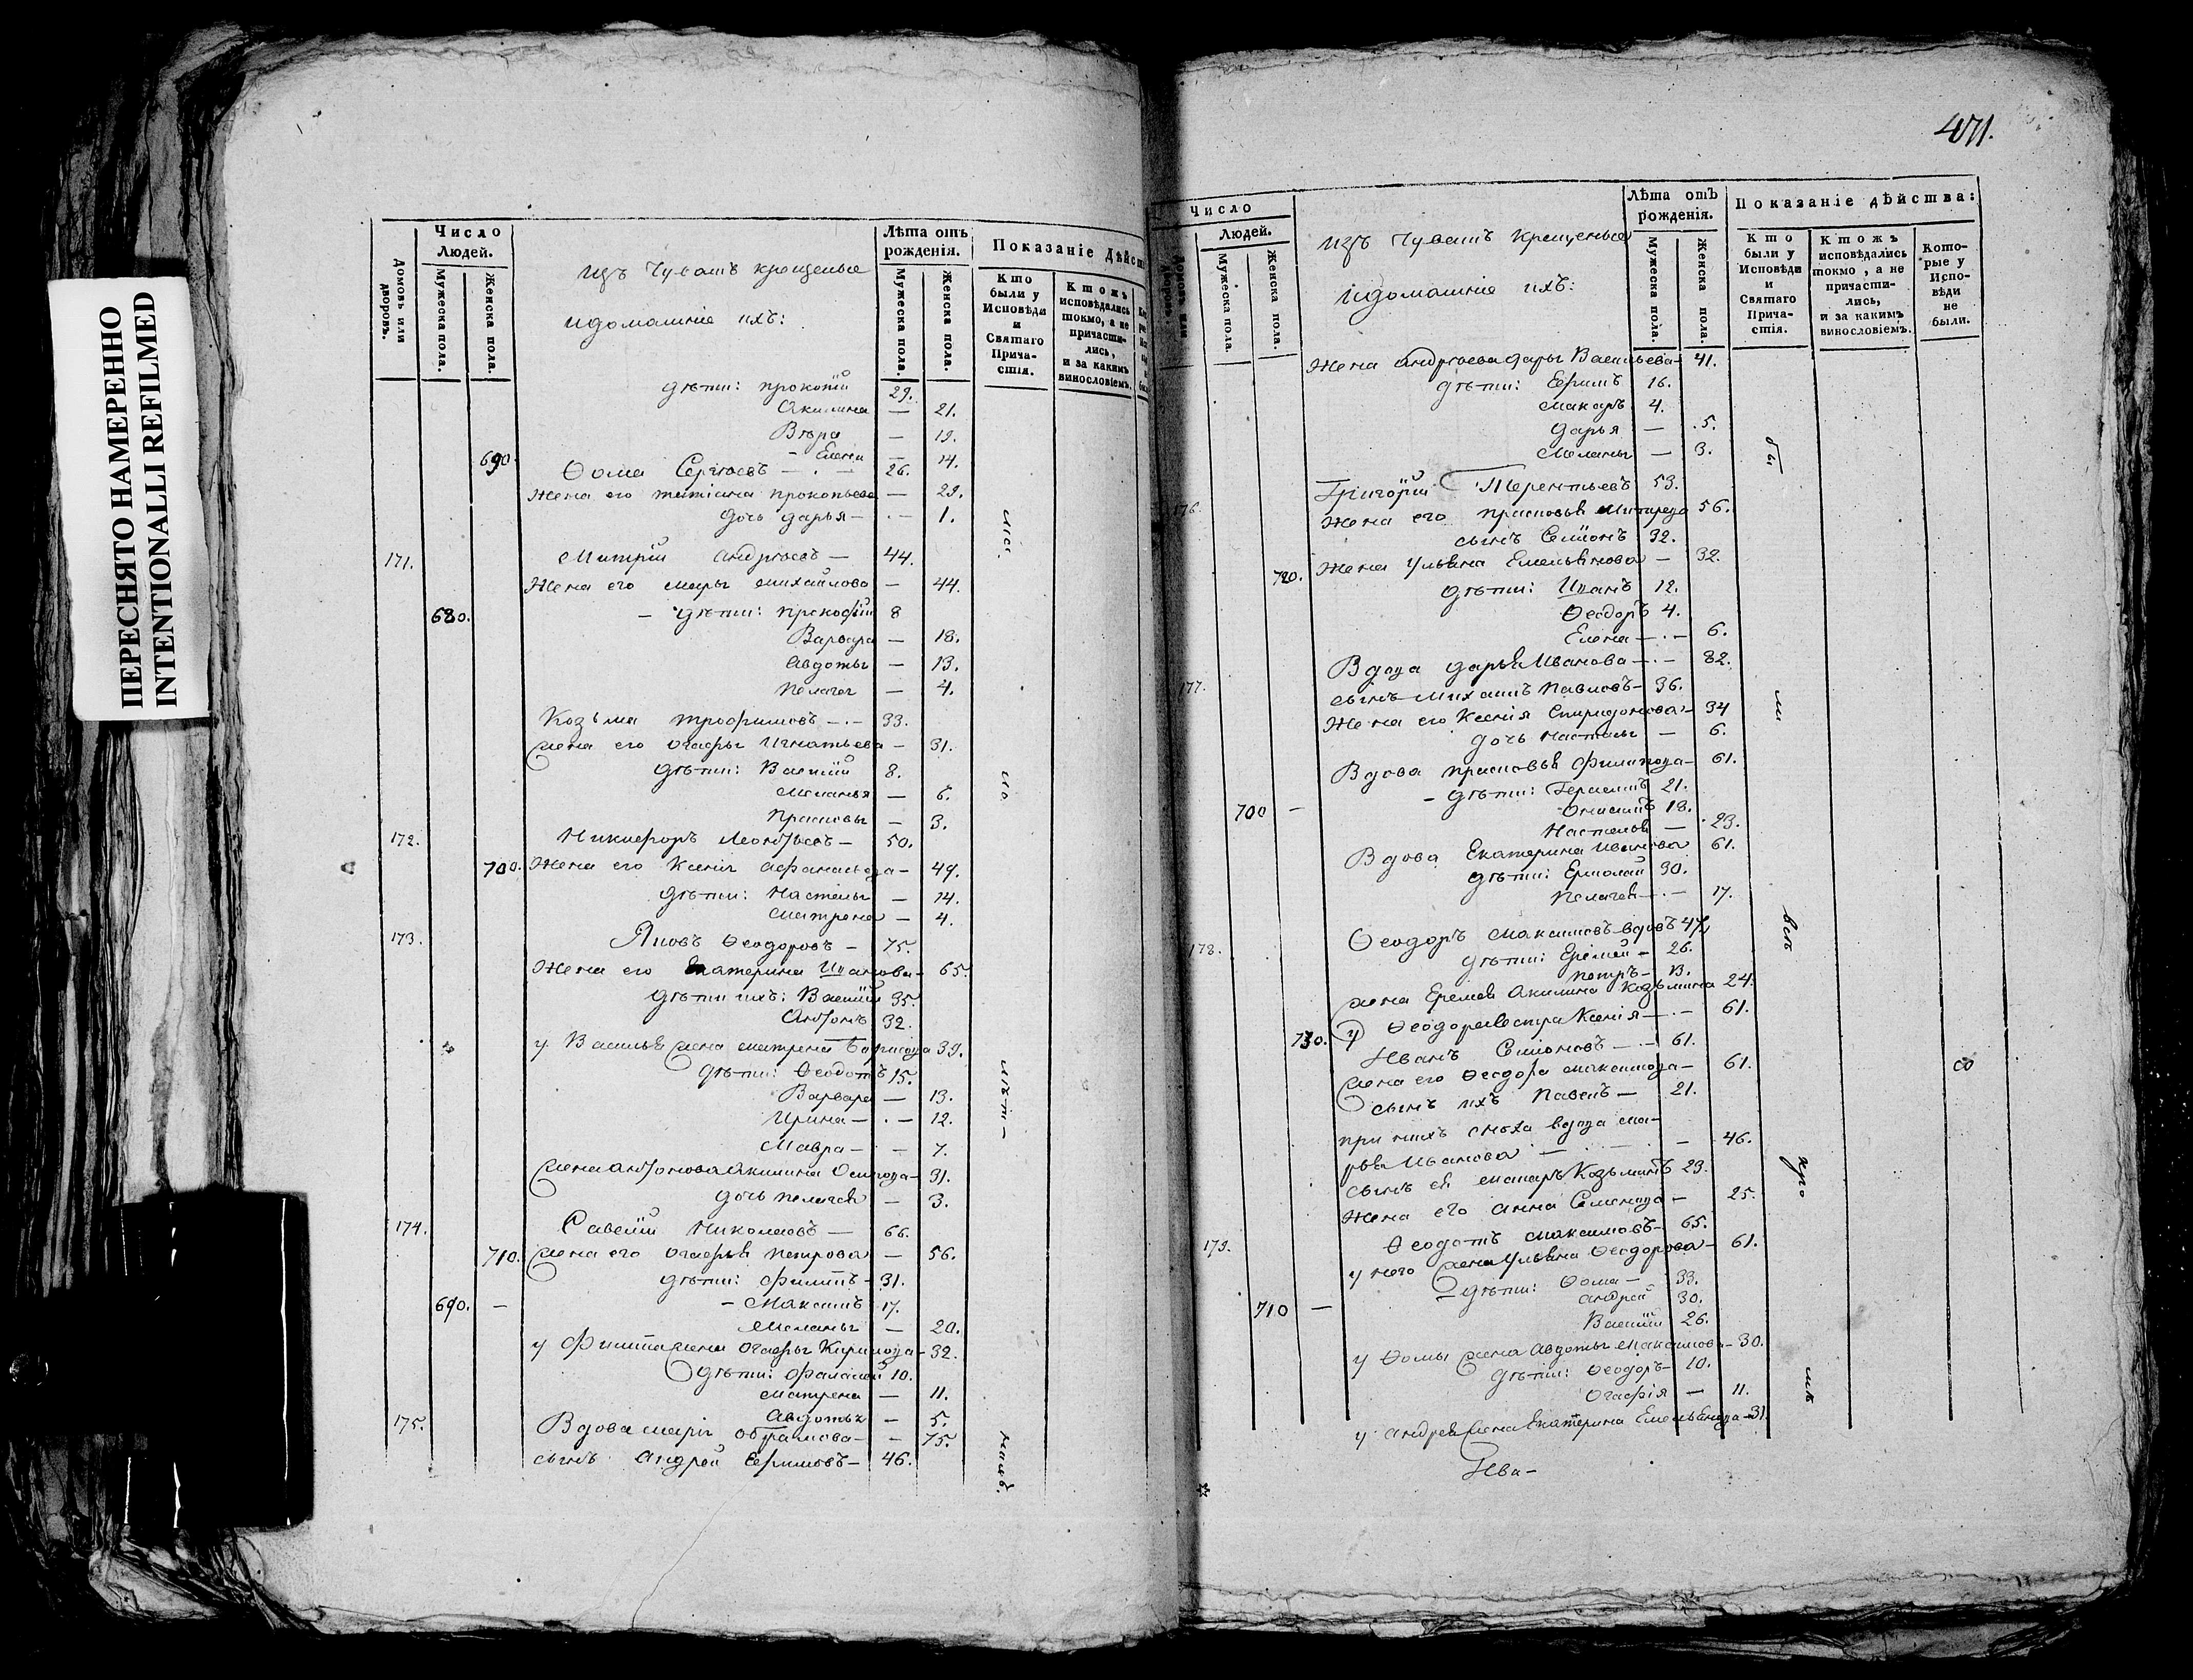 ПЕРЕСНЯТО НАМЕРЕННО
INTENTIONALLI REFILMED
Число Людей.
Домовъ или дворовъ.
Мужеска пола.
Женска пола.
Изъ Чувашъ крещеные
идомашние ихъ:
Лѣта отъ рожденія.
Мужеска пола.
Женска пола.
Показаніе дѣйст
Кто были у Исповѣди и Святаго Причастія.
Ктожъ исповѣдались токмо, а не причастились, и за какимъ винословіемъ.
дѣти: прокопій 29.
Акилина — 21.
Вѣра — 19.
690. Елена — 14.
Ѳома Сергѣевъ — 26.
Жена его татіана прокопьева — 29.
дочь дарья — 1.
171. Митрій андрѣевъ — 44.
Жена его марья михайлова — 44.
680. — дѣти: прокофій 8
Варвара — 18.
авдотья — 13.
пелагея — 4.
Козьма трофимовъ — 33.
жена его огафья Игнатьева — 31.
дѣти: Василій 8.
Меланья — 6.
прасковья — 3.
172. Никифоръ Леонтьевъ — 50.
700. Жена его Ксения афанасьева — 49.
дѣти: Настасья — 14.
матрена — 4.
173. Яковъ Ѳеодоровъ — 75.
Жена его Екатерина Иванова — 65.
дѣти ихъ: Василій 35.
Антонъ 32.
у Василья жена матрена Борисова 39.
дѣти: Ѳеодотъ 15.
Варвара — 13.
Ирина — 12.
Мавра — 7.
жена антонова Акилина Осипова — 31.
дочь пелагея — 3.
174. Савелій Николаевъ — 66.
710. жена его огафья петрова — 56.
дѣти: филипъ — 31.
690. — — Максимъ — 17.
Меланья — 20.
у Филипа жена огафья Кирилова — 32.
дѣти: фалалей 10.
матрена — 11.
Авдотья — 5.
175. Вдова марія обрамова — 75.
сынъ андрей Ефимовъ — 46.
471.
Число
Людей.
Домовъ или дворовъ.
Мужеска пола.
Женска пола.
Изъ Чувашъ крещеные
идомашние ихъ:
Лѣта отъ рожденія.
Мужеска пола.
Женска пола.
Показаніе дѣйства:
Кто были у Исповѣди и Святаго Причастія.
Ктожъ исповѣдались токмо, а не причастились, и за какимъ винословіемъ.
Которые у Исповѣди не были.
Жена андрѣева дарья Васильева — 41.
дѣти: Ефимъ 16.
макаръ 4.
дарья — 5.
Меланья — 3.
176. Григорій Терентьевъ 53.
Жена его прасковья 56.
сынъ Семіонъ 32.
720. Жена Ульяна Емельянова — 32.
дѣти: Иванъ 12.
Ѳеодоръ 4.
Елена — 6.
177. Вдова дарья Иванова — 82.
сынъ михаилъ павловъ — 36.
Жена его Ксенія Спиридонова — 34
дочь настасья — 6.
Вдова прасковья филипова — 61.
— дѣти: Герасимъ 21.
700 — Онисимъ 18.
Настасья — 23.
Вдова Екатерина иванова 61.
дѣти: Ермолай 30.
пелагея — 17.
178. Ѳеодоръ максимовъ вдовъ 47.
дѣти: Еремей — 26.
петръ — 13.
жена Еремея Акилина Козьмина 24.
730. у Ѳеодора сестра Ксенія — 61.
Иванъ Семіоновъ — 61.
жена его Ѳеодора максимова — 61.
сынъ ихъ Павелъ — 21.
при нихъ сноха вдова ма-
рья Иванова — 46.
сынъ ея макаръ Козьминъ 23.
Жена его анна Семенова — 25.
179. Ѳеодотъ максимовъ — 65.
у него жена Ульяна Ѳеодорова — 61.
— дѣти: Ѳома — 33.
710 — андрей 30.
Василій 26.
у Ѳомы жена авдотья максимова — 30.
дѣти: Ѳеодоръ — 10.
огафія — 11.
у андрея жена Екатерина Емельянова — 31.
Ива-
бы
ли
всѣ